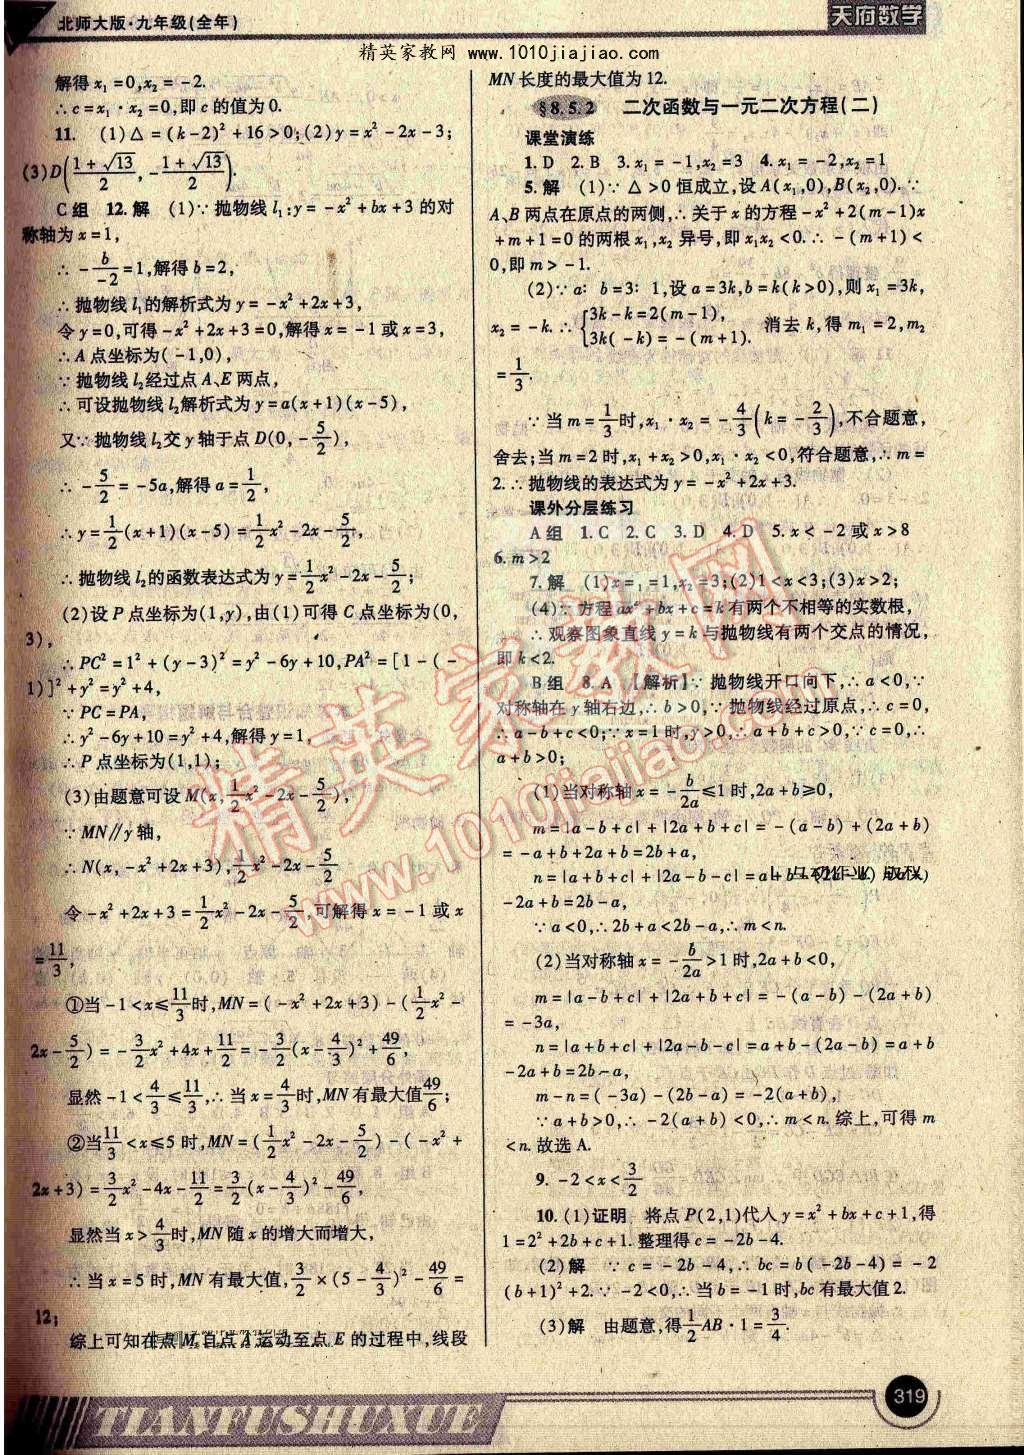 北师大版·九年级(全年)
天府数学
精英家教网 www.1010jiajiao.com
解得 x₁=0,x₂=-2.
∴c=x₁·x₂=0,即 c 的值为 0.
11. (1)△=(k-2)²+16>0;(2)y=x²-2x-3;
(3)D((1+√13)/2, -(1+√13)/2).
C组 12.解 (1)∵抛物线 l₁:y=-x²+bx+3 的对
称轴为 x=1,
∴-b/(-2)=1,解得 b=2,
∴抛物线 l₁的解析式为 y=-x²+2x+3,
令 y=0,可得-x²+2x+3=0,解得 x=-1 或 x=3,
∴A 点坐标为(-1,0),
∵抛物线 l₂经过点 A、E 两点,
∴可设抛物线 l₂解析式为 y=a(x+1)(x-5),
又∵抛物线 l₂交 y 轴于点 D(0,-5/2),
∴-5/2=-5a,解得 a=1/2,
∴y=1/2(x+1)(x-5)=1/2x²-2x-5/2,
∴抛物线 l₂的函数表达式为 y=1/2x²-2x-5/2;
(2)设 P 点坐标为(1,y),由(1)可得 C 点坐标为(0,
3),
∴PC²=1²+(y-3)²=y²-6y+10,PA²=[1-(-
1)]²+y²=y²+4,
∵PC=PA,
∴y²-6y+10=y²+4,解得 y=1,
∴P 点坐标为(1,1);
(3)由题意可设 M(x,1/2x²-2x-5/2),
∵MN∥y 轴,
∴N(x,-x²+2x+3),1/2x²-2x-5/2
令-x²+2x+3=1/2x²-2x-5/2,可解得 x=-1 或 x
=11/3,
①当-1<x≤11/3时,MN=(-x²+2x+3)-(1/2x²-
2x-5/2)=-3/2x²+4x+11/2=-3/2(x-4/3)²+49/6,
显然-1<4/3≤11/3,∴当 x=4/3时,MN 有最大值49/6;
②当11/3<x≤5 时,MN=(1/2x²-2x-5/2)-(-x²+
2x+3)=3/2x²-4x-11/2=3/2(x-4/3)²-49/6,
显然当 x>4/3时,MN 随 x 的增大而增大,
∴当 x=5 时,MN 有最大值,3/2×(5-4/3)²-49/6=
12;
综上可知在点 M 自点 A 运动至点 E 的过程中,线段
MN 长度的最大值为 12.
§8.5.2 二次函数与一元二次方程(二)
课堂演练
1.D 2.B 3.x₁=-1,x₂=3 4.x₁=-2,x₂=1
5.解 (1)∵△>0 恒成立,设 A(x₁,0),B(x₂,0).∵
A、B 两点在原点的两侧,∴关于 x 的方程-x²+2(m-1)x
+m+1=0 的两根 x₁,x₂ 异号,即 x₁x₂<0.∴-(m+1)<
0,即 m>-1.
(2)∵a∶b=3∶1,设 a=3k,b=k(k>0),则 x₁=3k,
x₂=-k.∴{3k-k=2(m-1), 3k(-k)=-(m+1). 消去 k,得 m₁=2,m₂
=1/3.
∵当 m=1/3时,x₁·x₂=-4/3(k=-2/3),不合题意,
舍去;当 m=2 时,x₁+x₂>0,x₁·x₂<0,符合题意,∴m=
2.∴抛物线的表达式为 y=-x²+2x+3.
课外分层练习
A组 1.C 2.C 3.D 4.D 5.x<-2 或 x>8
6.m>2
7.解 (1)x=₁=1,x₂=3;(2)1<x<3;(3)x>2;
(4)∵方程 ax²+bx+c=k 有两个不相等的实数根,
∴观察图象直线 y=k 与抛物线有两个交点的情况,
即 k<2.
B组 8.A 【解析】∵抛物线开口向下,∴a<0,∵
对称轴在 y 轴右边,∴b>0,∵抛物线经过原点,∴c=0,
∴a-b+c<0;∵x=1 时,y>0,∴a+b+c>0,∵c=0,∴
a+b>0;
(1)当对称轴 x=-b/2a≤1 时,2a+b≥0,
m=|a-b+c|+|2a+b+c|=-(a-b)+(2a+b)
=-a+b+2a+b=2b+a,
n=|a+b+c|+|2a-b-c|=a+b-(2a-b)=a+b
-2a+b=2b-a,
∵a<0,∴2b+a<2b-a,∴m<n.
(2)当对称轴 x=-b/2a>1 时,2a+b<0,
m=|a-b+c|+|2a+b+c|=-(a-b)-(2a+b)
=-3a,
n=|a+b+c|+|2a-b-c|=a+b-(2a-b)=a+b
-2a+b=2b-a,
m-n=(-3a)-(2b-a)=-2(a+b),
∵a+b>0,∴-2(a+b)<0,∴m<n.综上,可得 m
<n.故选 A.
9.-2<x<3/2
10.(1)证明 将点 P(2,1)代人 y=x²+bx+c+1,得
1=2²+2b+c+1.整理得 c=-2b-4.
(2)解 ∵c=-2b-4,∴bc=b(-2b-4)=-2
(b+1)²+2.∵-2<0,∴当 b=-1 时,bc 有最大值 2.
(3)解 由题意,得1/2AB·1=3/4.
精英家教网
www.1010jiajiao.com
TIANFUSHUXUE
319